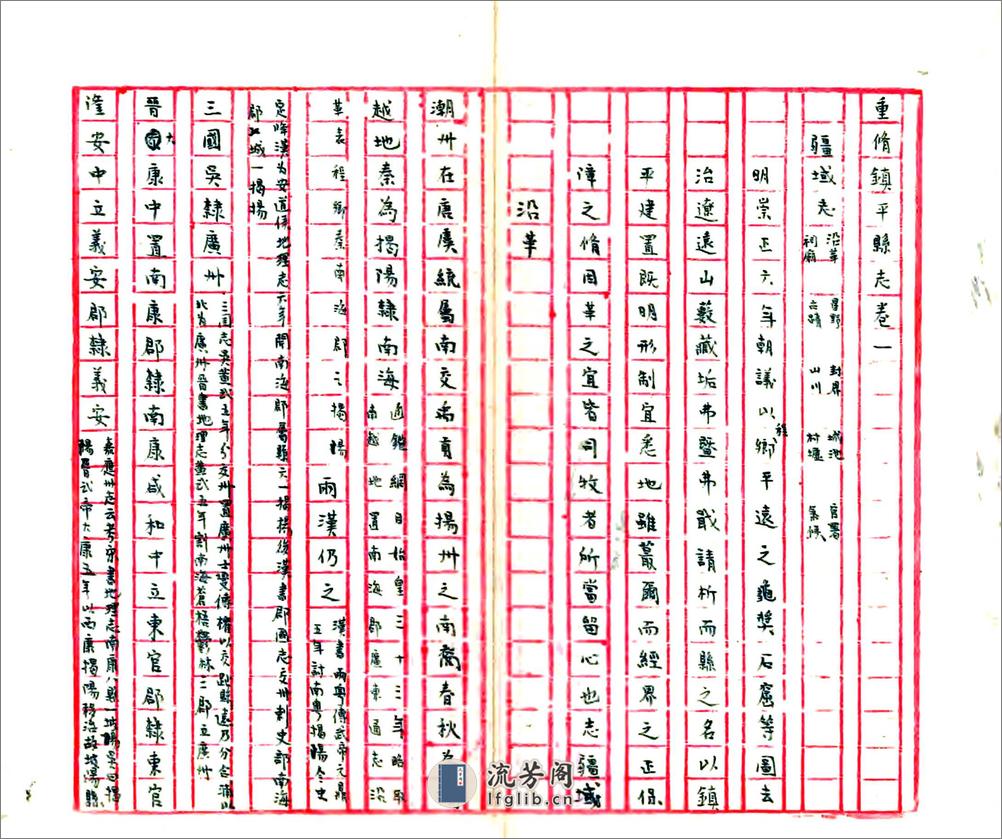 重脩鎮平縣志卷一
疆域志 沿革 星野 封界 城池 官署
祠廟 古蹟 山川 村墟 氣候
明崇正六年朝議以程鄉平遠之龜獎石窟等圖去
治遼遠山藪藏垢弗暨弗戢請析而縣之名以鎮
平建置既明形制宜悉地雖蕞爾而經界之正保
障之脩因革之宜皆司牧者所當留心也志疆域
沿革
潮州在唐虞統屬南交禹貢為揚州之南裔春秋為
越地秦為揭陽隸南海 通鑑綱目始皇三十三年略取
南越地置南海郡廣東通志沿
革表程鄉秦南海郡之揭陽 兩漢仍之 漢書兩粵傳武帝元鼎
五年討南粵揭陽令史
定降漢為安道侯地理志六年開南海郡屬縣六一揭陽後漢書郡國志交州刺史部南海
郡七城一揭揚
三國吳隸廣州 三國志吳黃武五年分交州置廣州士燮傳權以交趾縣遠乃分合浦以
北為廣州晉書地理志黃武五年割南海蒼梧鬱林三郡立廣州
晉太康中置南康郡隸南康咸和中立東官郡隸東官
逢安中立義安郡隸義安 嘉應州志云考宋書地理志南康八縣一陂陽吳曰揭
陽晉武帝太康五年以西康揭陽移治故陂陽縣
流芳阁
lfglib.cn